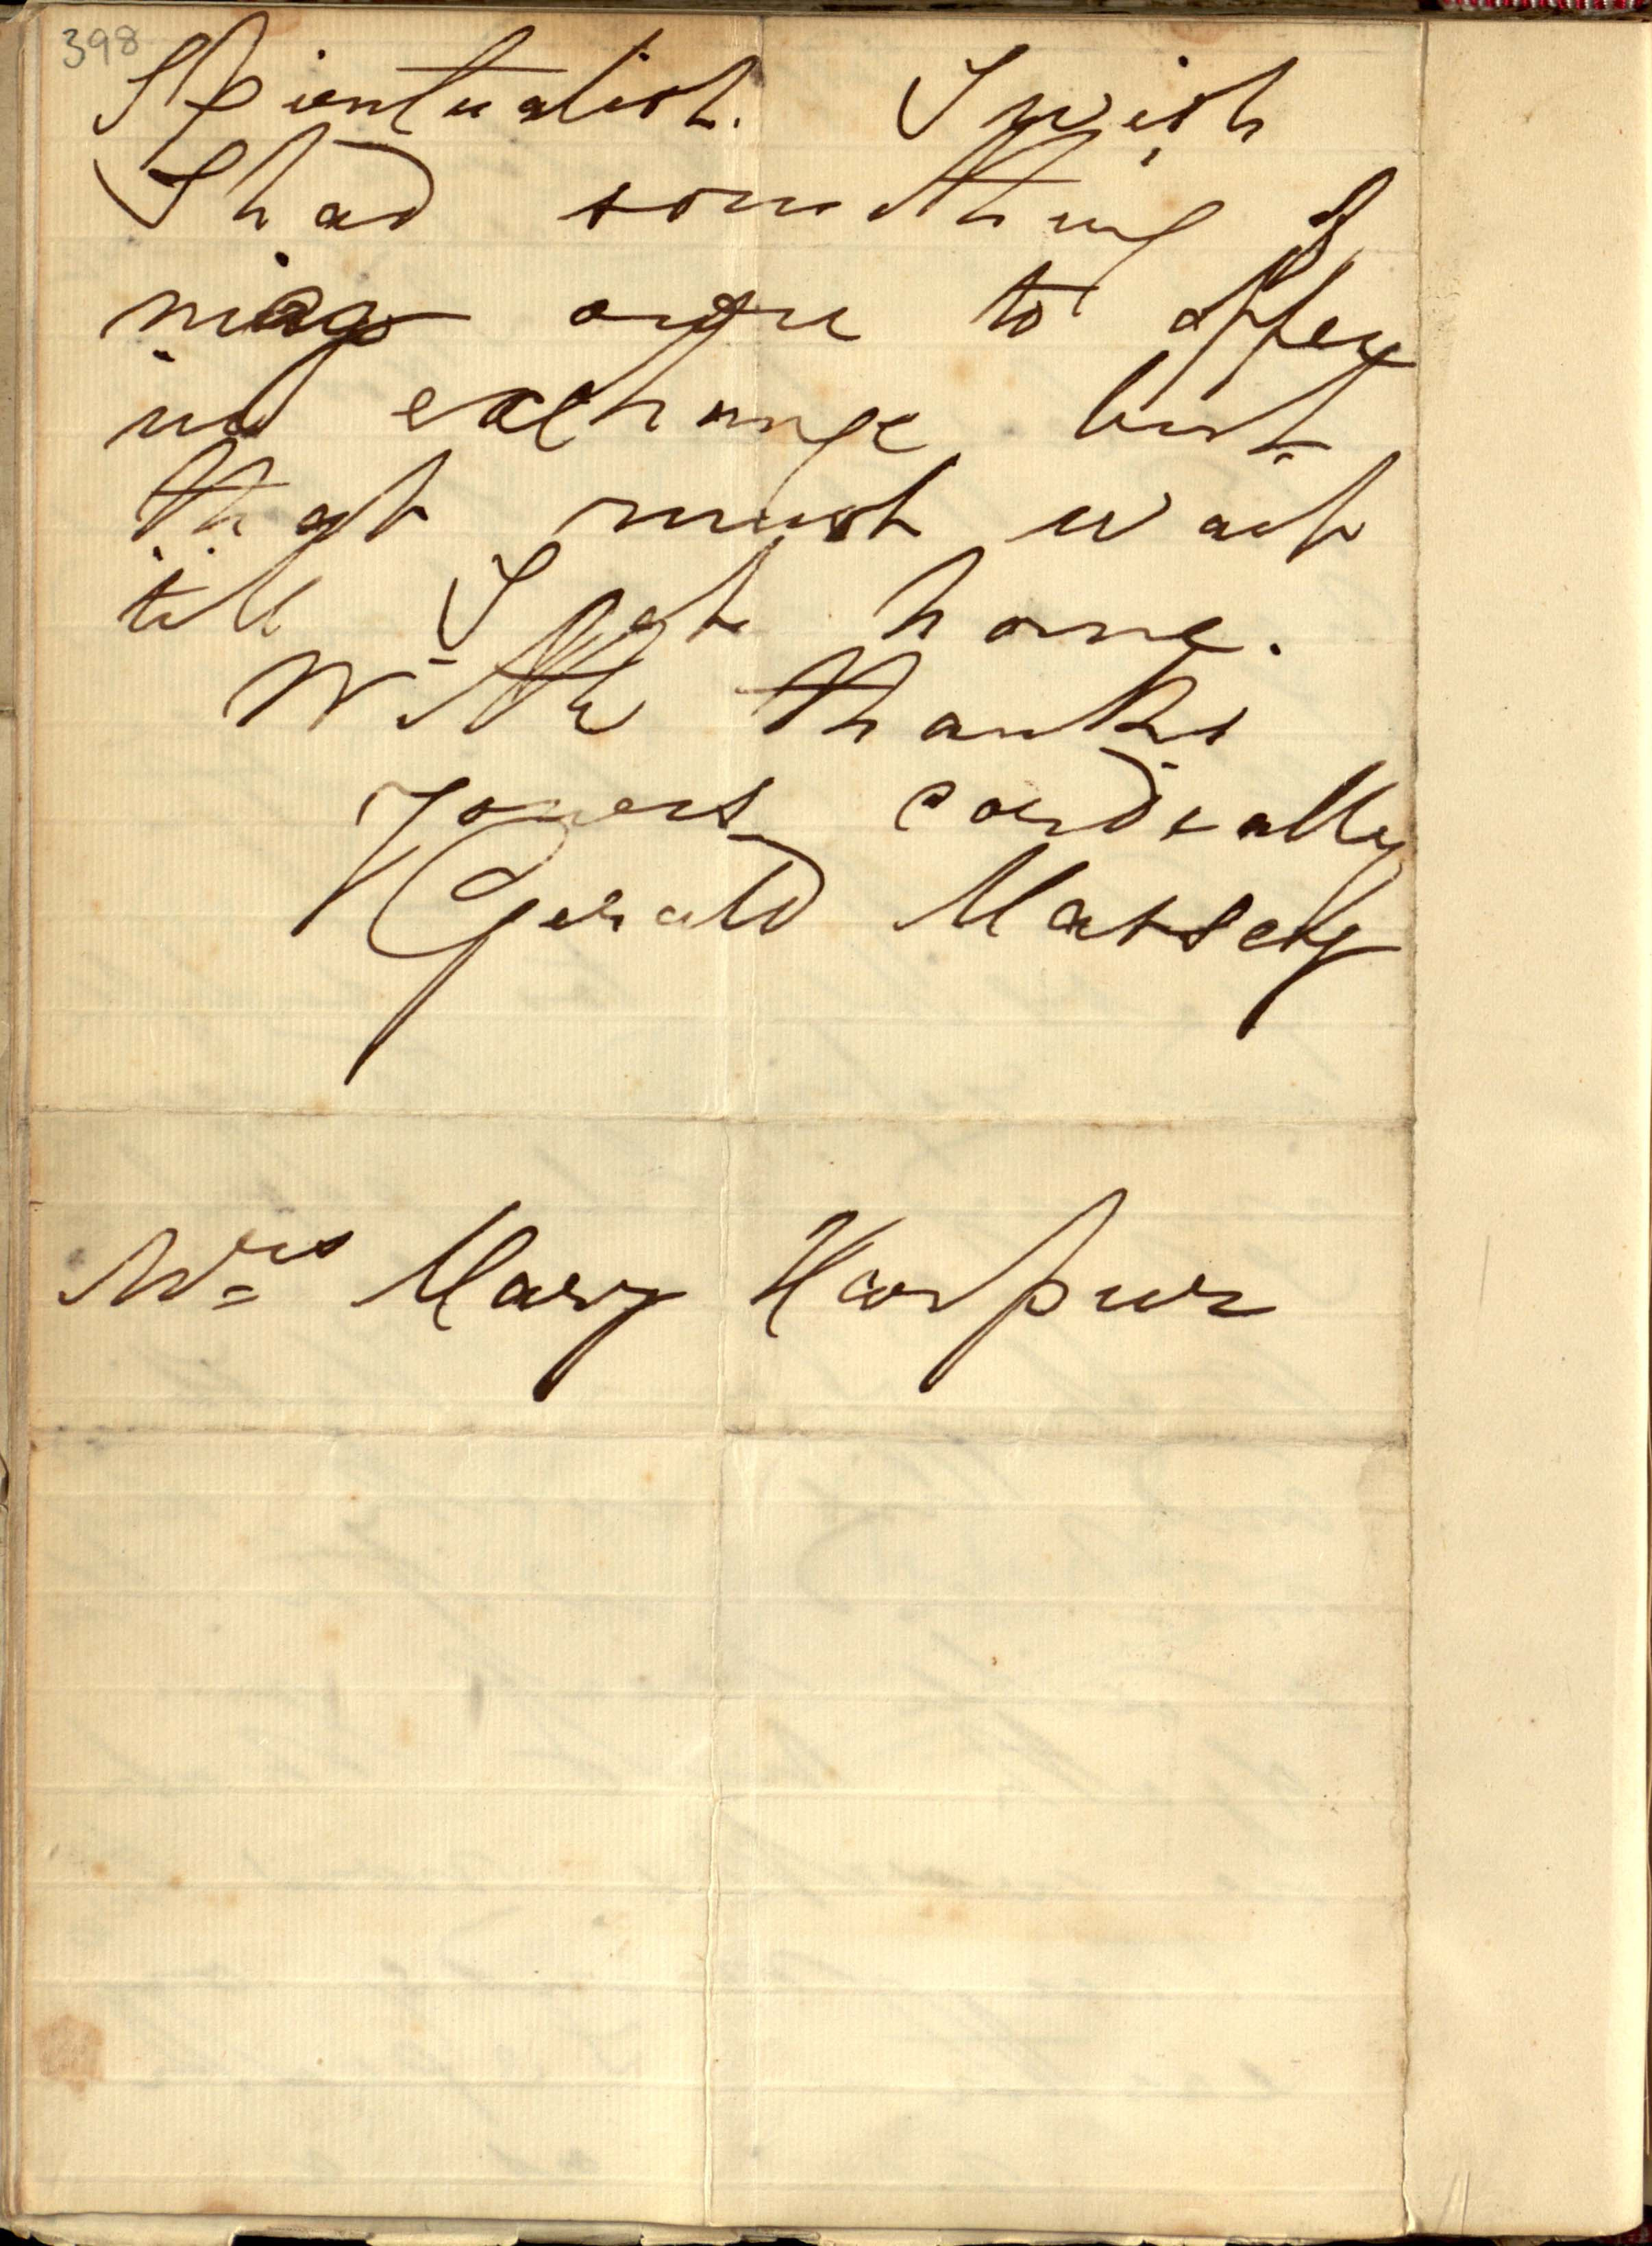 398
Spiritualist. I wish
I had something of
my own to offer
in exchange but
that must wait
till I get home.
With thanks
Yours cordially
Gerald Massey
Mrs Mary Harpur